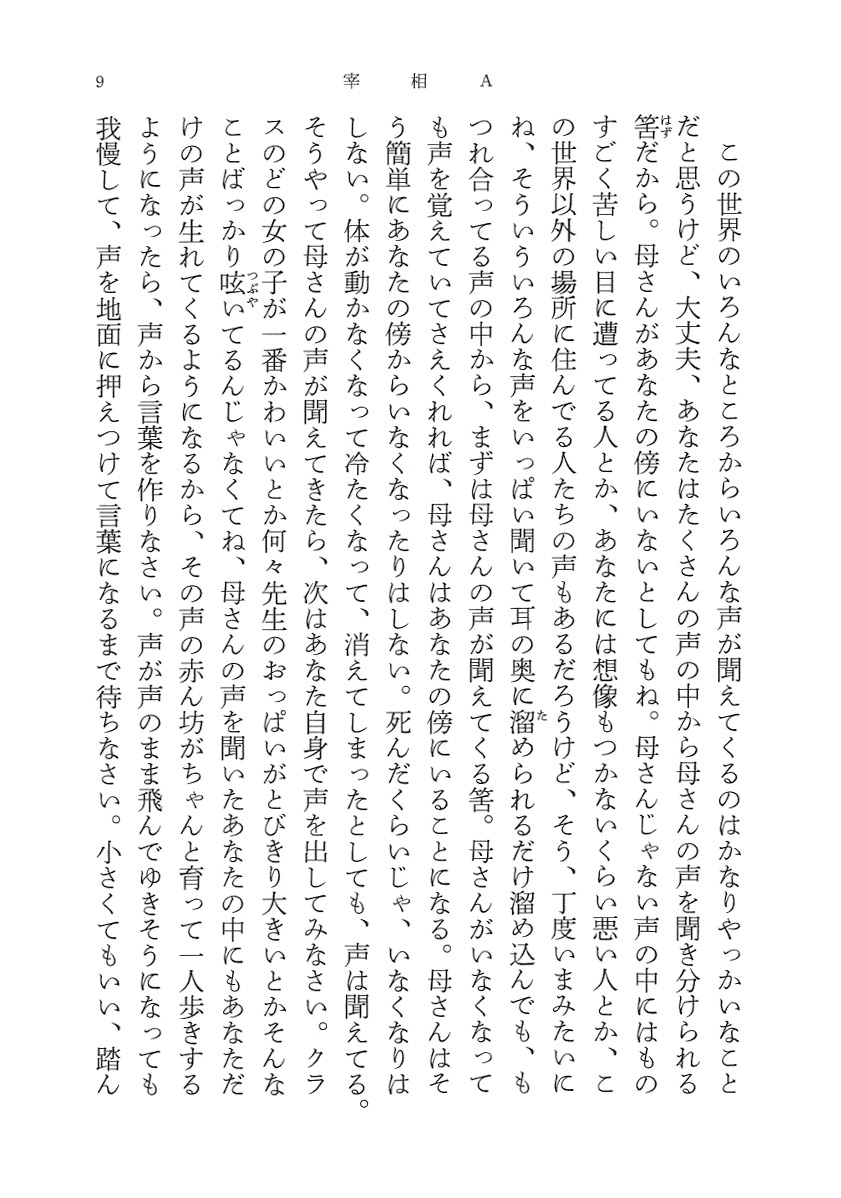 9
宰相A
この世界のいろんなところからいろんな声が聞えてくるのはかなりやっかいなこと
だと思うけど、大丈夫、あなたはたくさんの声の中から母さんの声を聞き分けられる
筈だから。母さんがあなたの傍にいないとしてもね。母さんじゃない声の中にはもの
すごく苦しい目に遭ってる人とか、あなたには想像もつかないくらい悪い人とか、こ
の世界以外の場所に住んでる人たちの声もあるだろうけど、そう、丁度いまみたいに
ね、そういういろんな声をいっぱい聞いて耳の奥に溜められるだけ溜め込んでも、も
つれ合ってる声の中から、まずは母さんの声が聞えてくる筈。母さんがいなくなって
も声を覚えていてさえくれれば、母さんはあなたの傍にいることになる。母さんはそ
う簡単にあなたの傍からいなくなったりはしない。死んだくらいじゃ、いなくなりは
しない。体が動かなくなって冷たくなって、消えてしまったとしても、声は聞えてる。
そうやって母さんの声が聞えてきたら、次はあなた自身で声を出してみなさい。クラ
スのどの女の子が一番かわいいとか何々先生のおっぱいがとびきり大きいとかそんな
ことばっかり呟いてるんじゃなくてね、母さんの声を聞いたあなたの中にもあなただ
けの声が生れてくるようになるから、その声の赤ん坊がちゃんと育って一人歩きする
ようになったら、声から言葉を作りなさい。声が声のまま飛んでゆきそうになっても
我慢して、声を地面に押えつけて言葉になるまで待ちなさい。小さくてもいい、踏ん